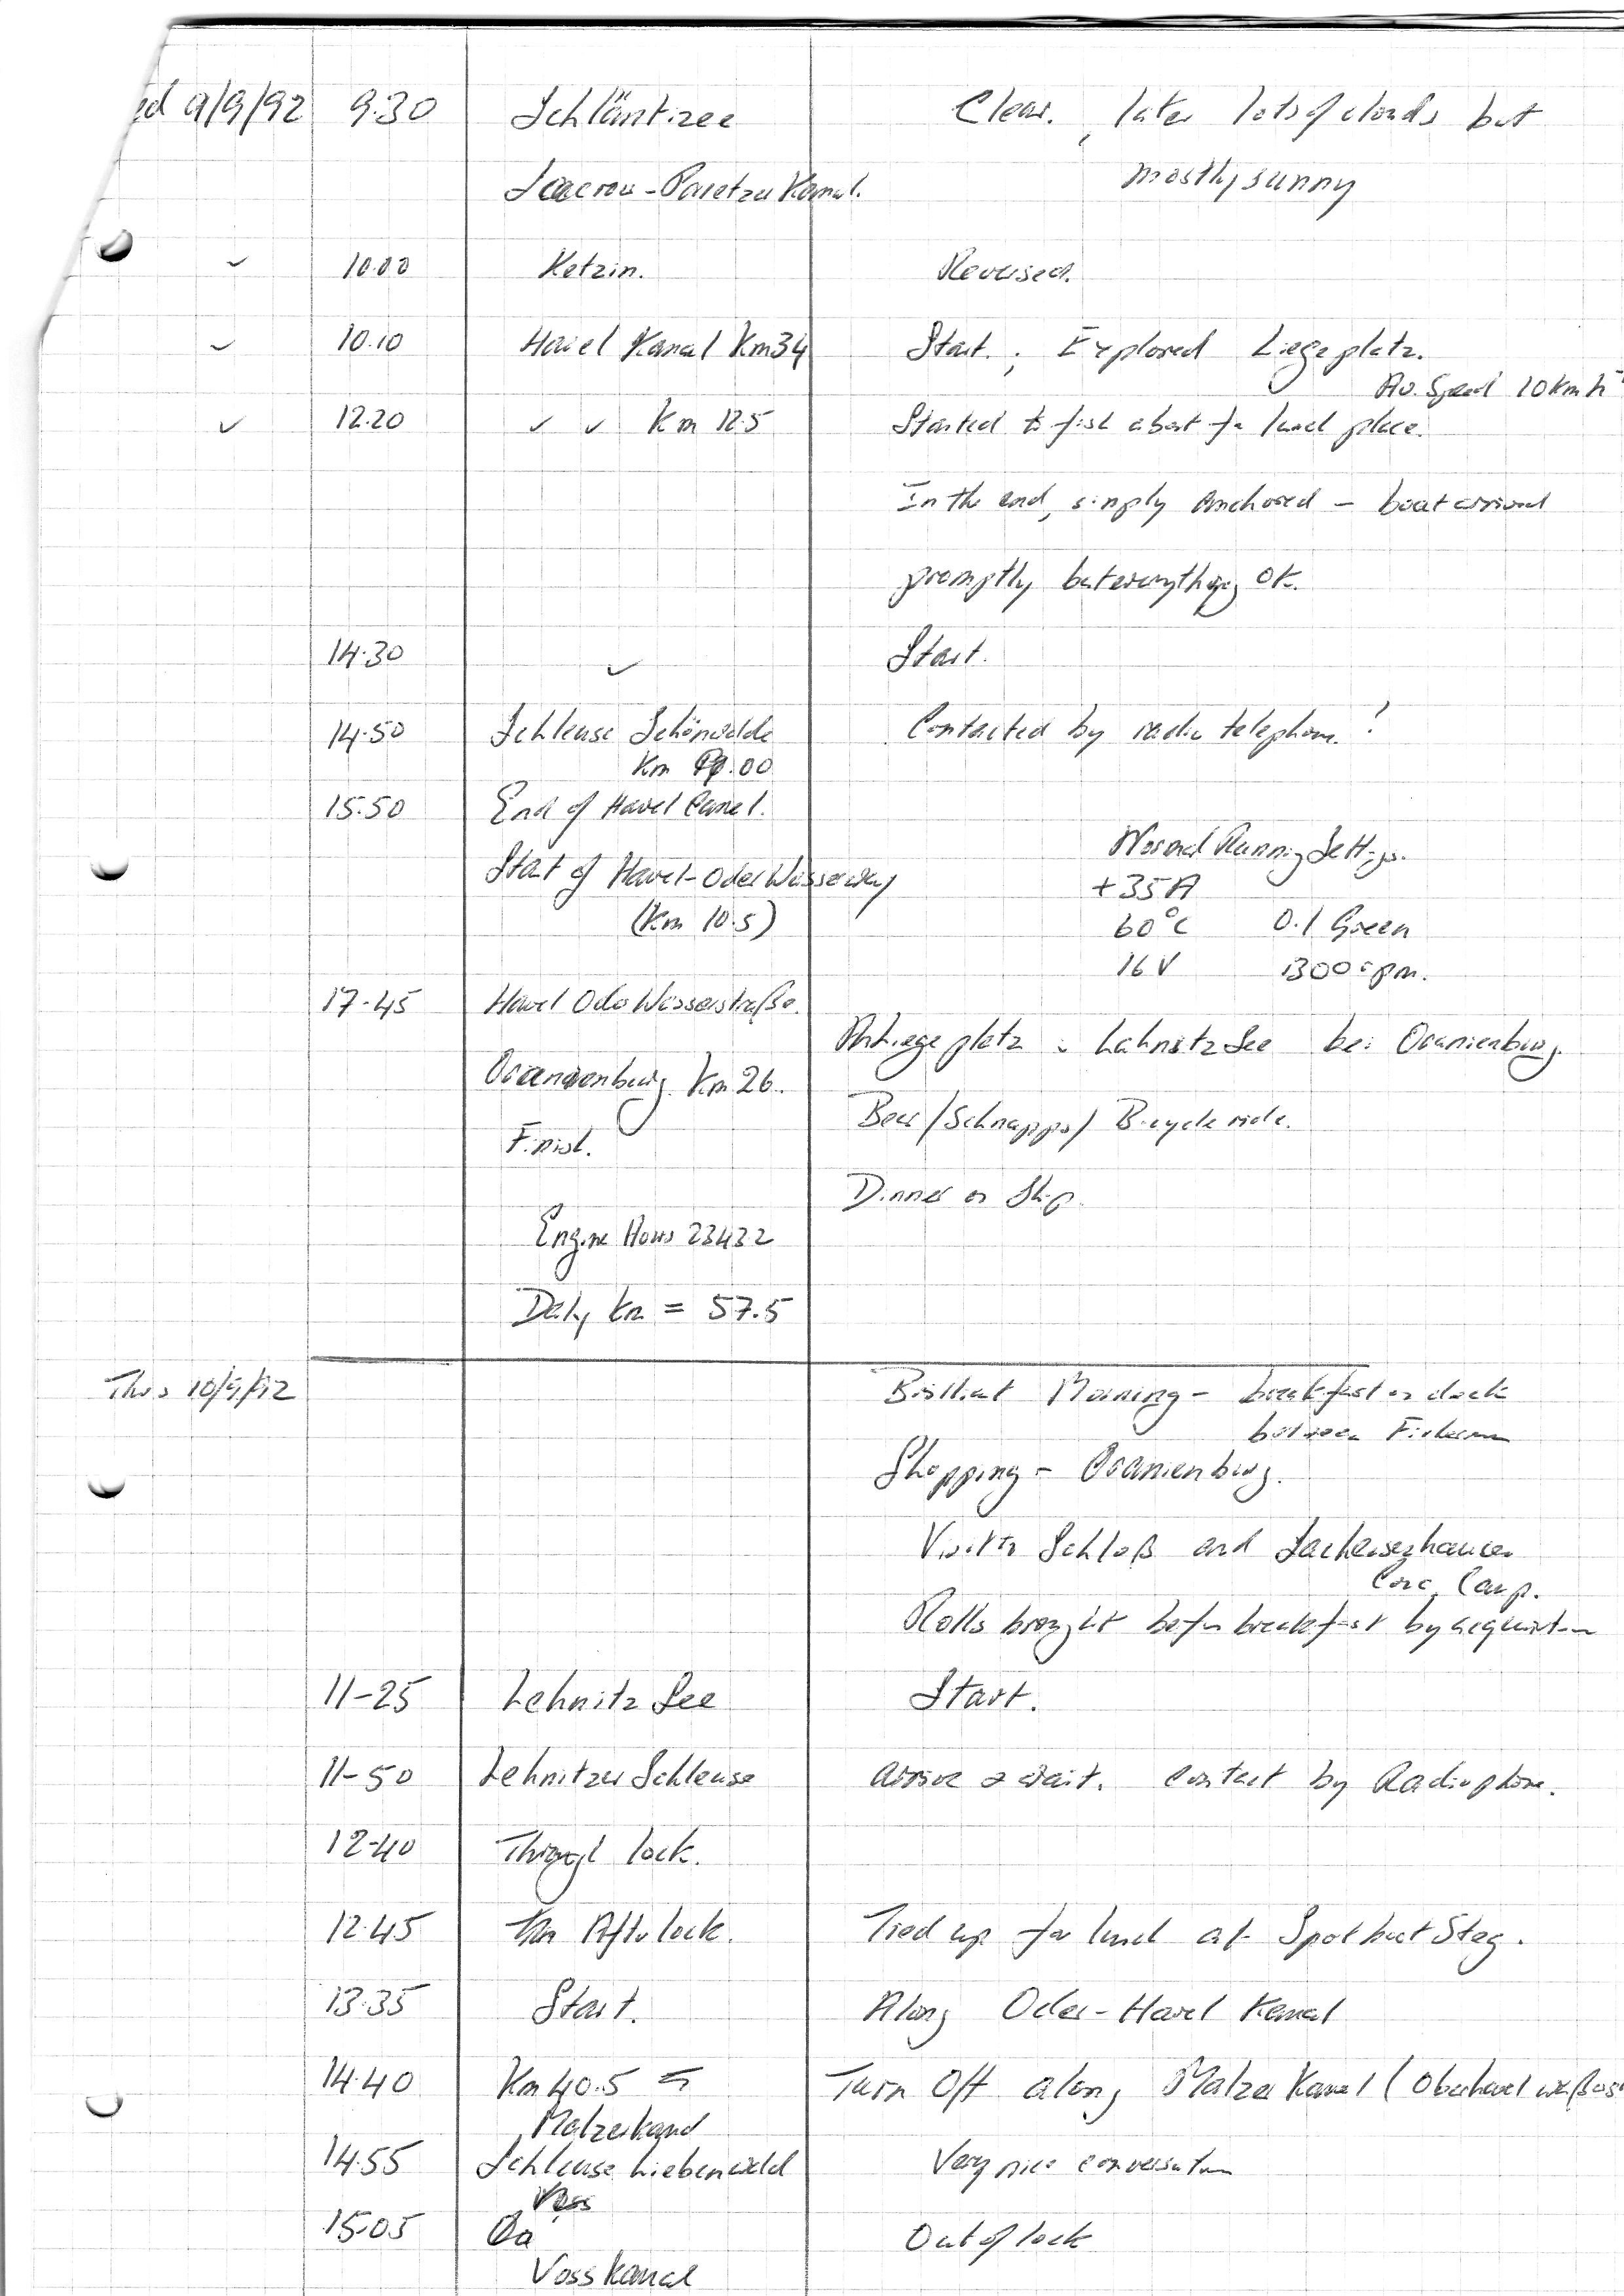 ed 9/9/92 9.30 Schläntzee Clear, later lots of clouds but
mostly sunny
Sacrow-Paretzer Kanal.
✓ 10.00 Ketzin. Reversed.
✓ 10.10 Havel Kanal Km34 Start. ; Explored Liegeplatz.
Av. Speed 10 Km h⁻
✓ 12.20 ✓ ✓ Km 12.5 Started to fish about for lunch place.
In the end, simply anchored - boat arrived
promptly but everything OK.
14.30 ✓ Start.
14.50 Schleuse Schönwalde Contacted by radio telephone!
Km .00
15.50 End of Havel Canal.
Normal Running Settings.
Start of Havel-Oder Wasserway
+35A
(Km 10.5) 60°C 0.1 Green
16V 1300 rpm.
17-45 Havel Oder Wasserstraße.
Anliegeplatz : Lehnitz See bei Oranienburg.
Oranienburg. Km 26.
Beer/Schnapps/Bicycle ride.
Finish.
Dinner on Ship.
Engine Hours 2343.2
Daily Km = 57.5
Thurs 10/9/92 Brilliant Morning - breakfast on deck
between Fishermen
Shopping - Oranienburg.
Visit to Schloß and Sachsenhausen
Conc. Camp.
Rolls brought before breakfast by
11-25 Lehnitz See Start.
11-50 Lehnitzer Schleuse arrive & wait. Contact by Radiophone.
12-40 Through lock.
12.45 After lock. Tied up for lunch at Sportboot Steg.
13.35 Start. Along Oder-Havel Kanal
14.40 Km 40.5 Turn Off along Malzer Kanal (Oberhavel
Malzerkanal
14.55 Schleuse Liebenwald Very nice conversation
Voss
15.05 Out of lock
Voss Kanal